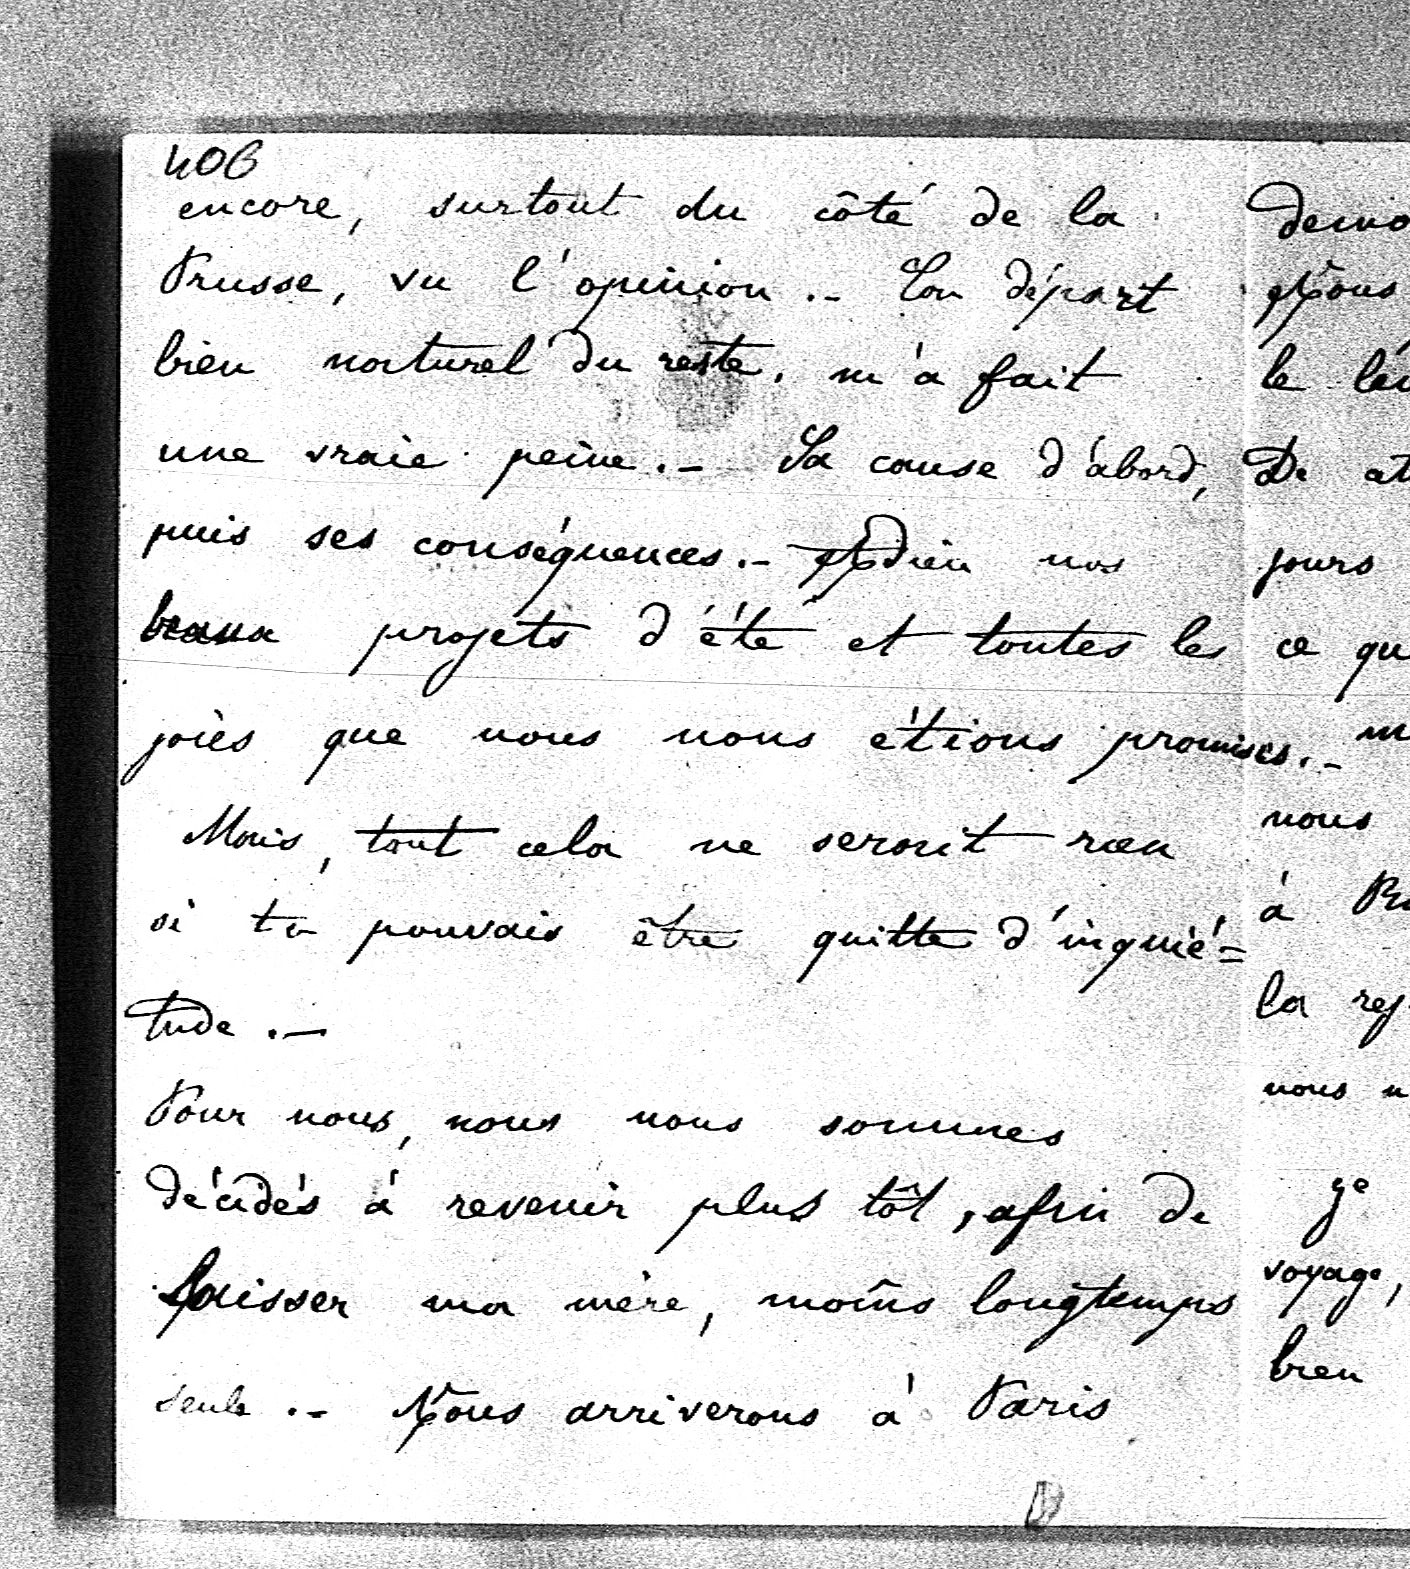 406
encore, surtout du côté de la
Prusse, vu l'opinion.- Ton départ
bien naturel du reste, m'a fait
une vraie peine.- Sa cause d'abord,
puis ses conséquences.- Adieu nos
beaux projets d'été et toutes les
joies que nous nous étions promises.-
Mais, tout cela ne serait rien
si tu pouvais être quitte d'inquié=
tude.-
Pour nous, nous nous sommes
décidés à revenir plus tôt, afin de
laisser ma mère, moins longtemps
seule.- Nous arriverons à Paris
Nous
le
De
jours
ce
nous
à
la
nous
je
voyage,
bien